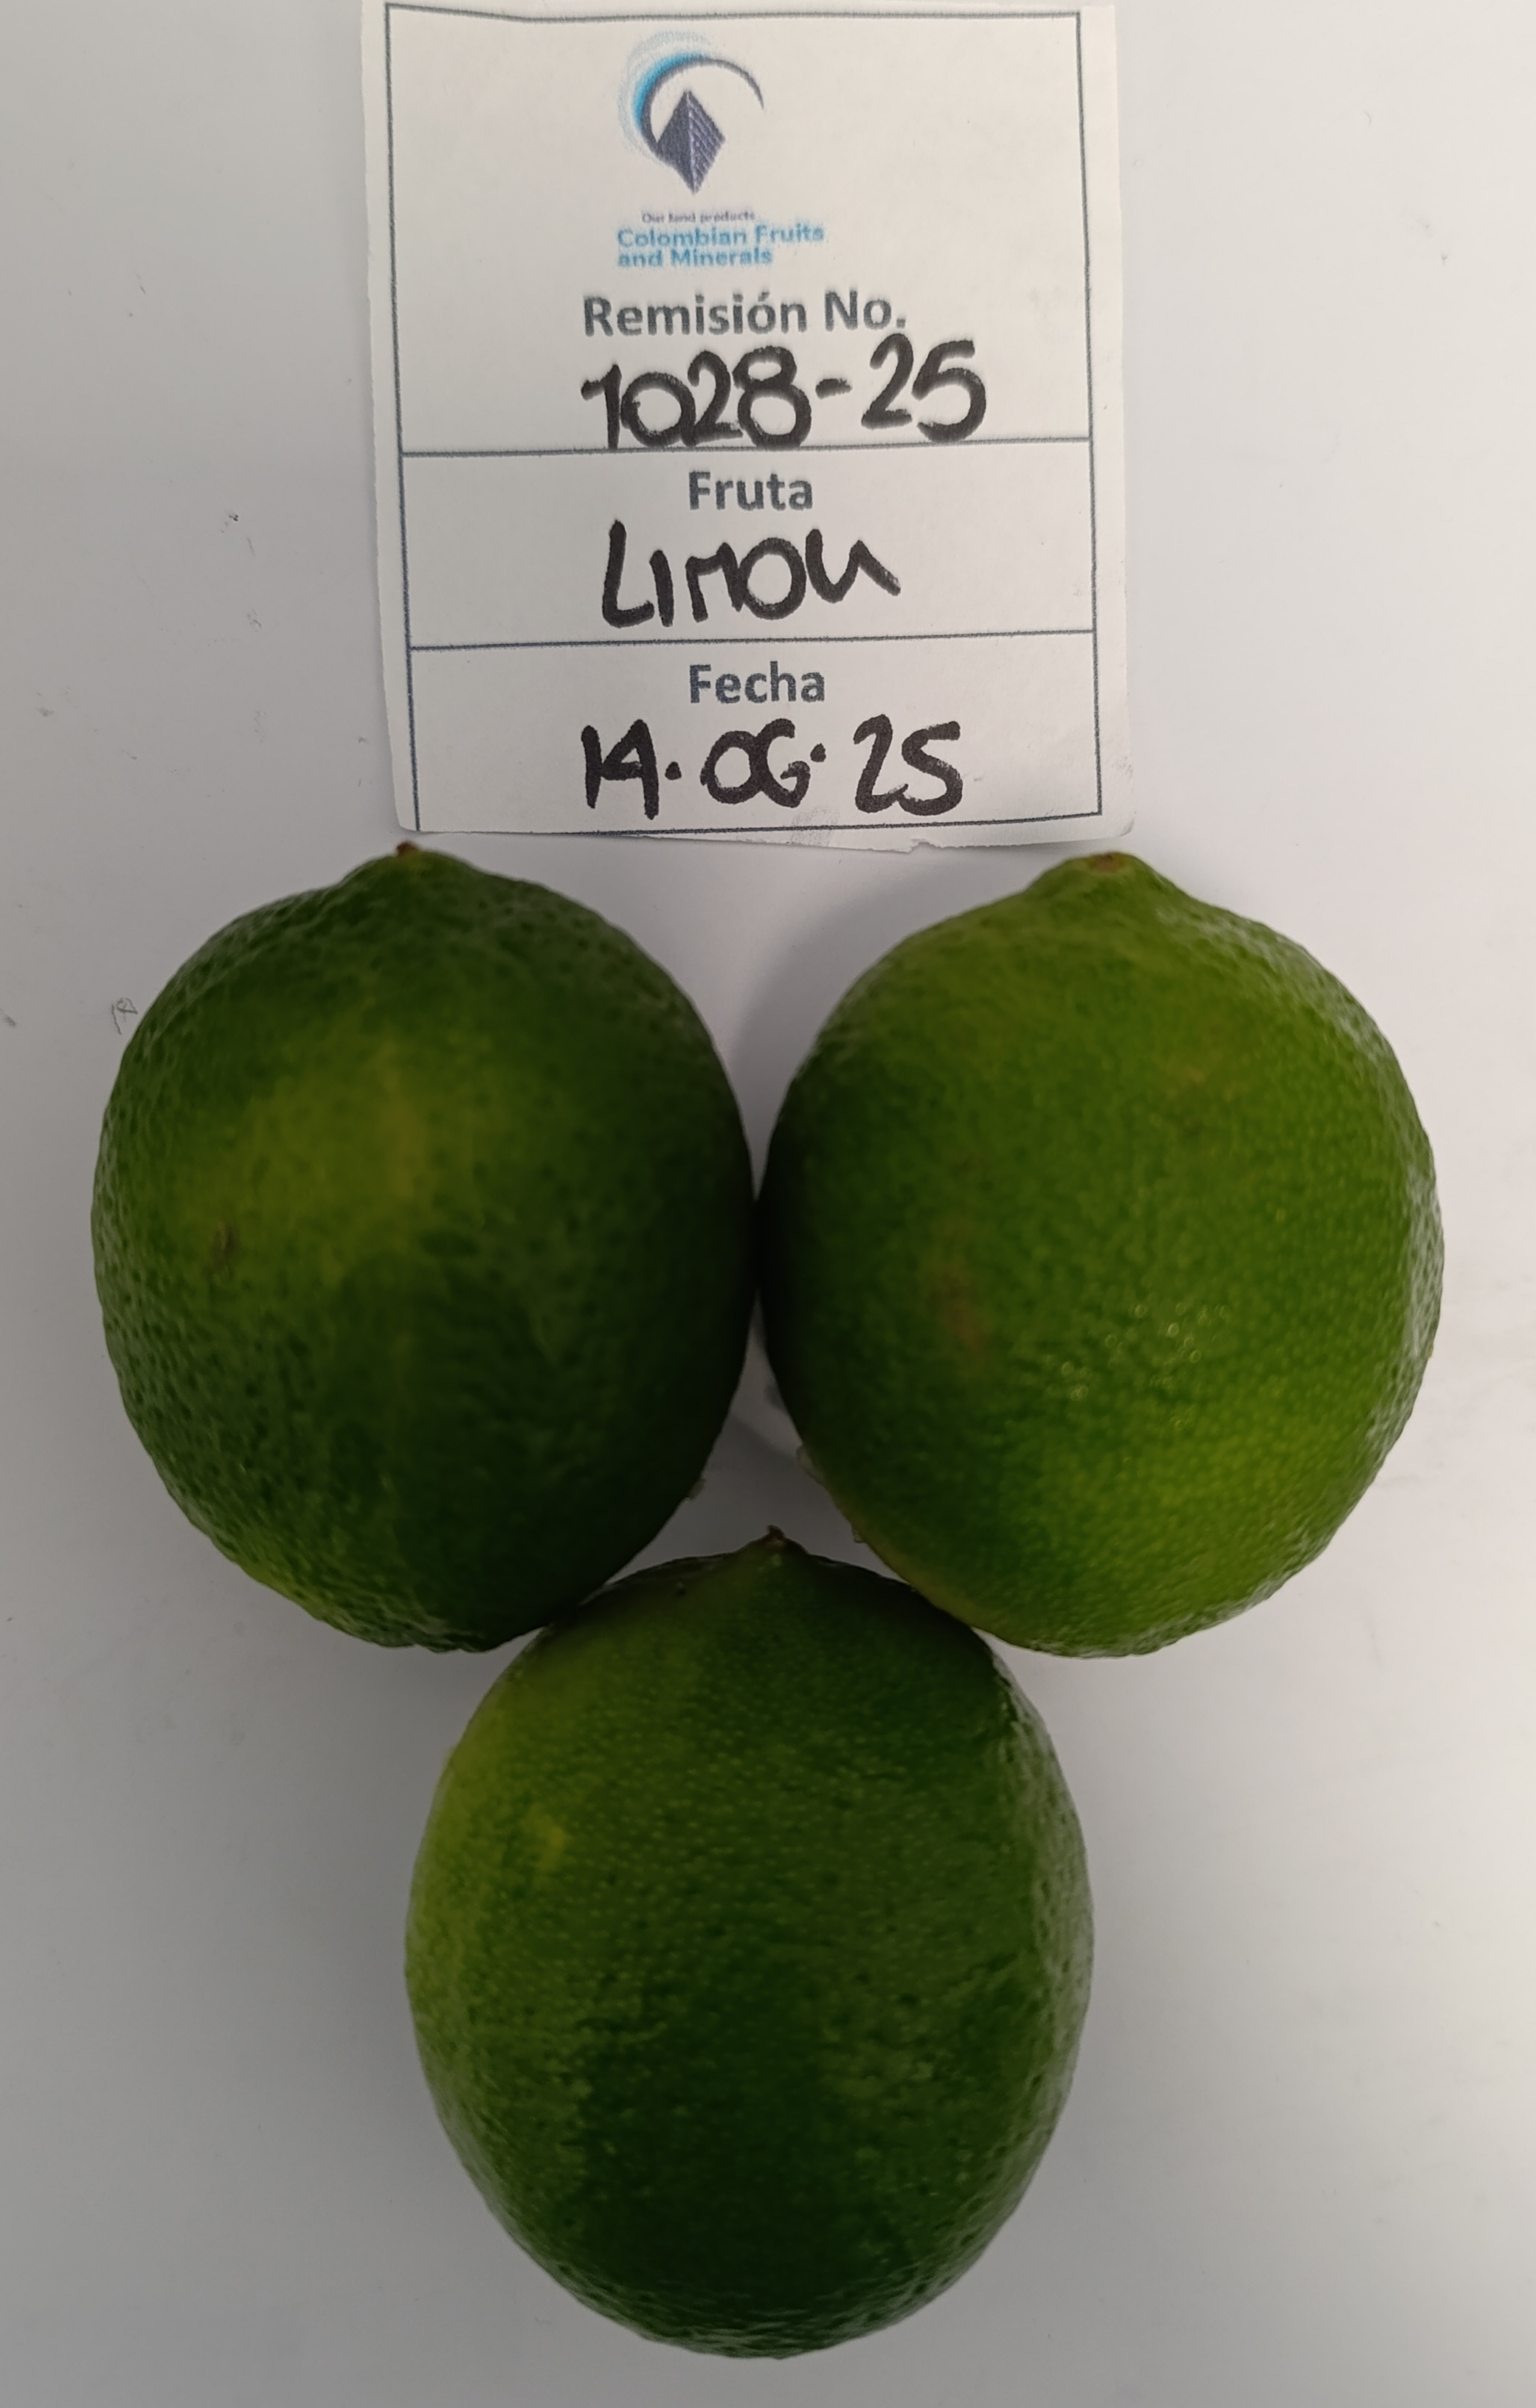 Our land products
Colombian Fruits
and Minerals
Remisión No.
1028-25
Fruta
LIMON
Fecha
14.06.25